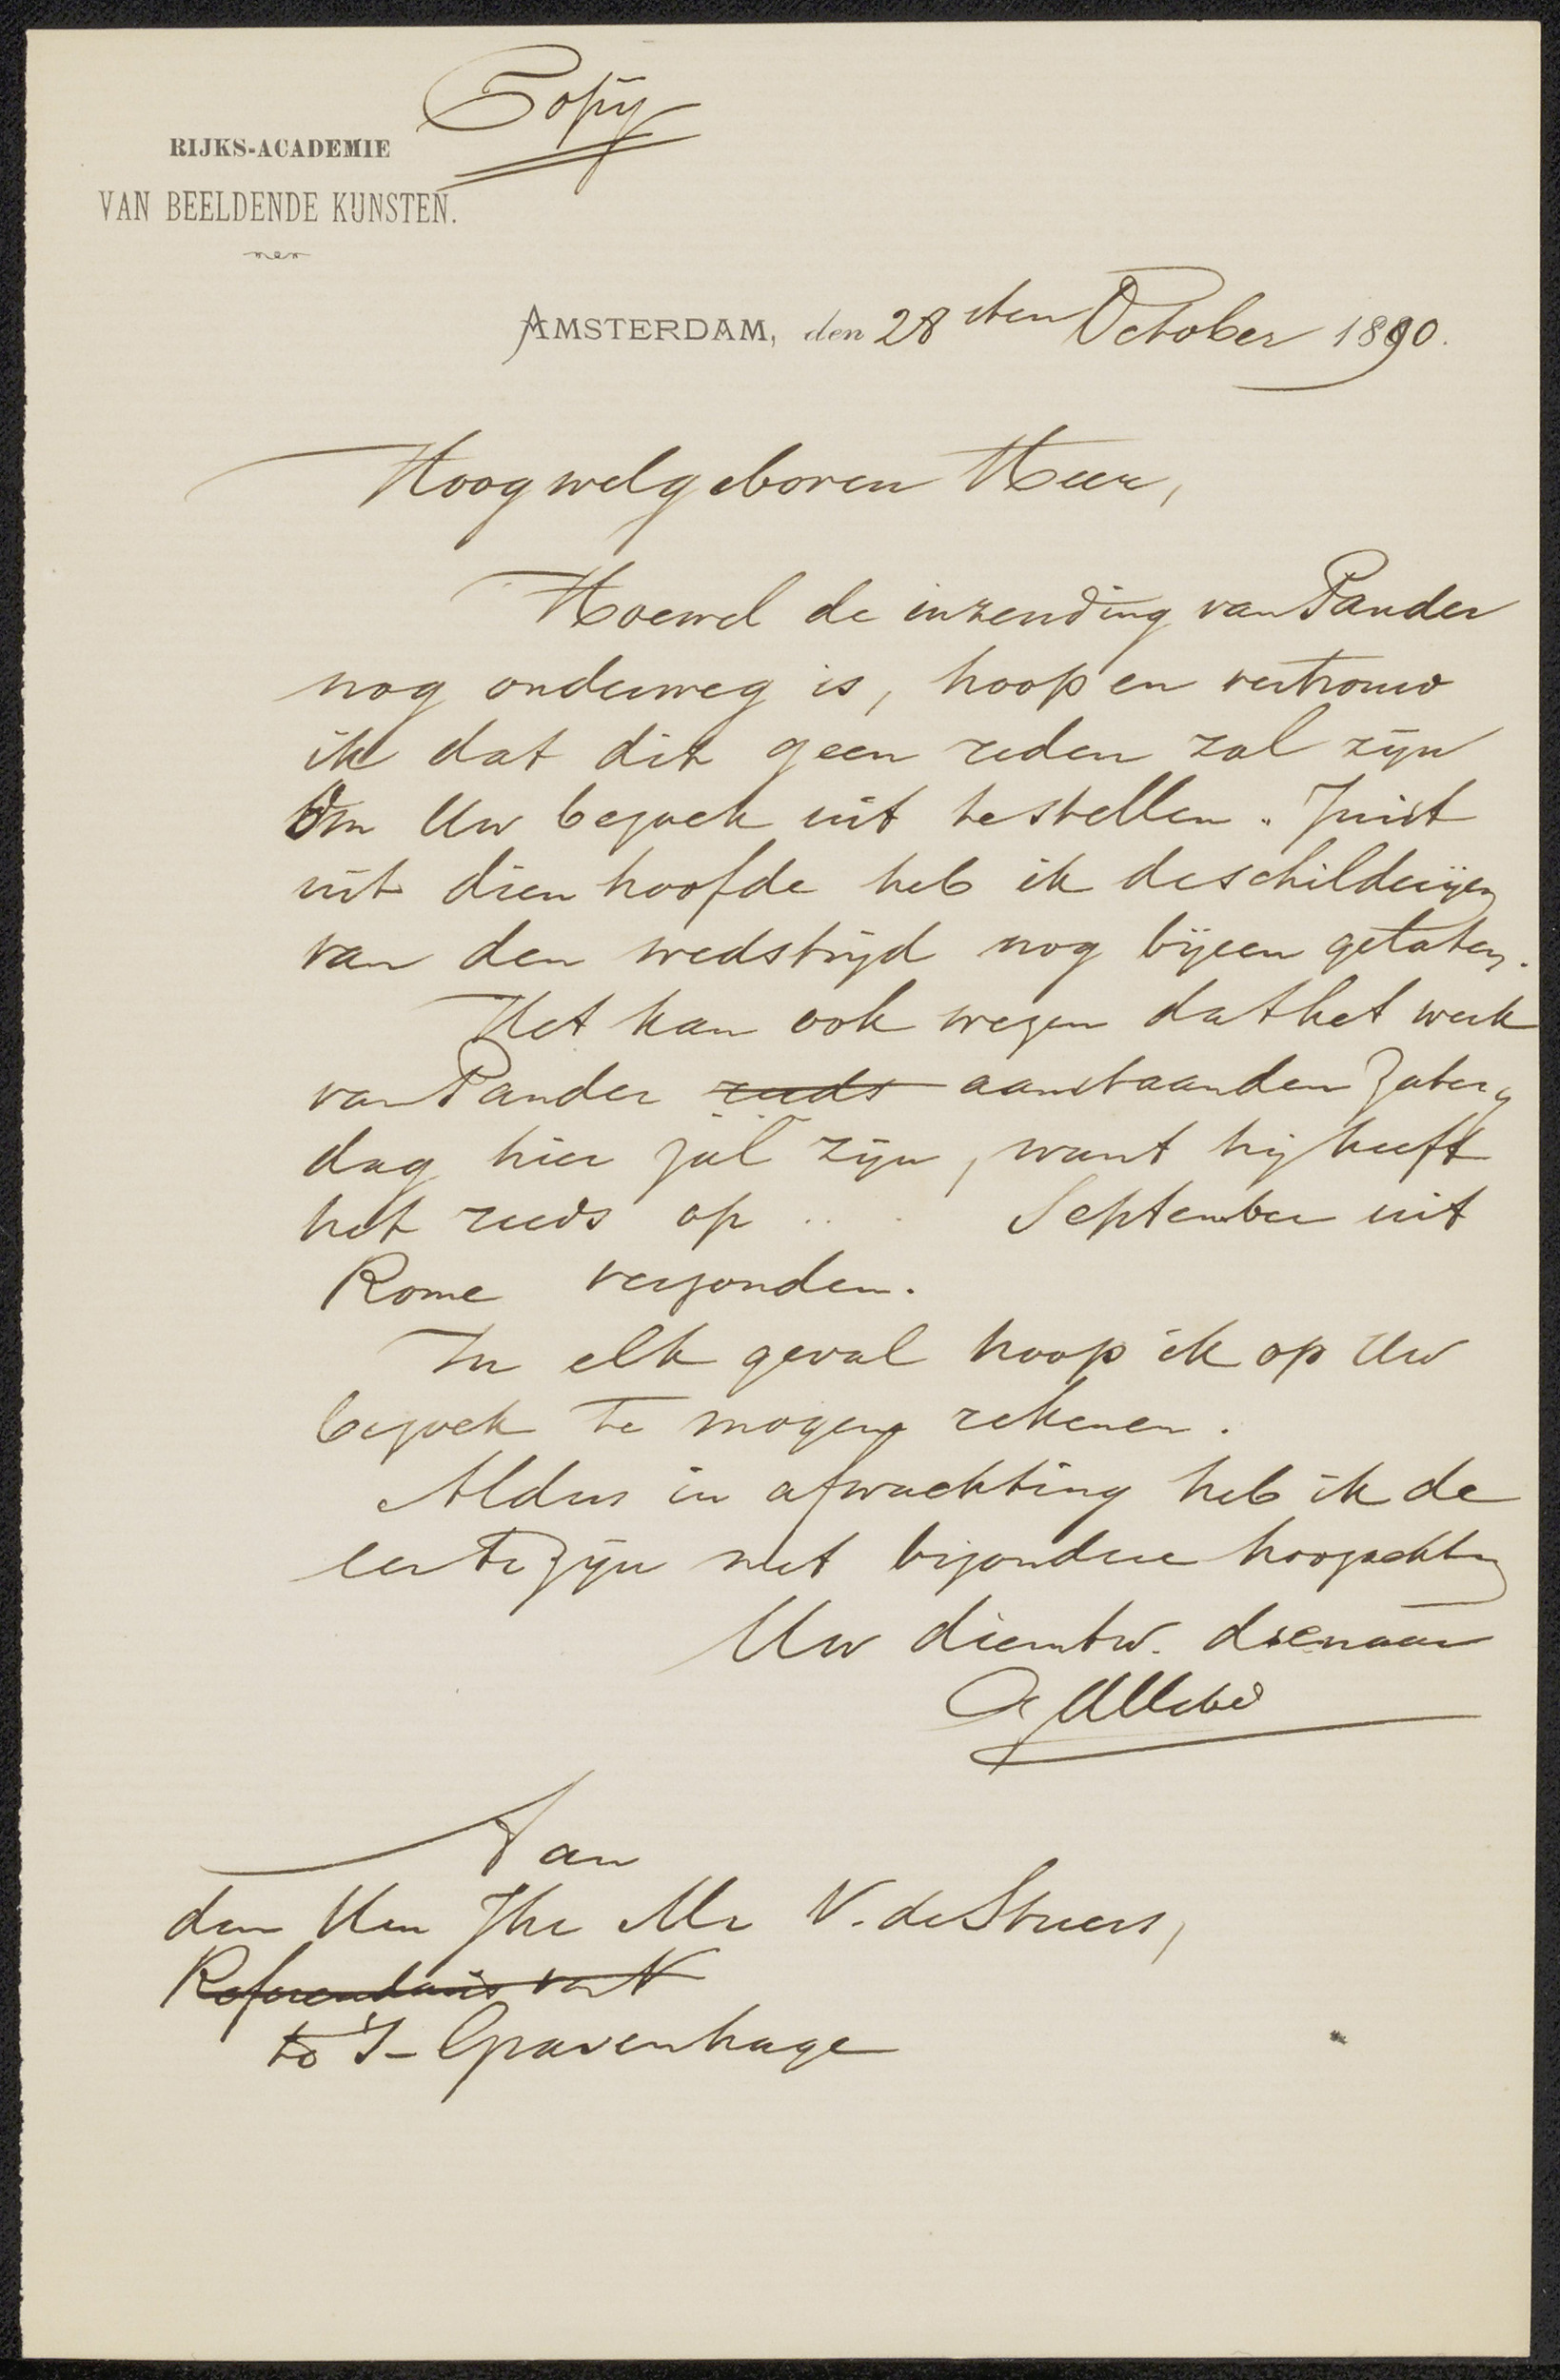 Copy
RIJKS-ACADEMIE
VAN BEELDENDE KUNSTEN.
AMSTERDAM, den 28sten October 1890.
Hoogwelgeboren Heer,
Hoewel de inzending van Pander
nog onderweg is, hoop en vertrouw
ik dat dit geen reden zal zijn
om Uw bezoek uit te stellen. Juist
uit dien hoofde heb ik de schilderijen
van den wedstrijd nog bijeen gelaten.
Het kan ook wezen dat het werk
van Pander reeds aanstaanden Zater-
dag hier zal zijn, want hij heeft
het reeds op .. . September uit
Rome verzonden.
In elk geval hoop ik op Uw
bezoek te mogen rekenen.
Aldus in afwachting heb ik de
eer te zijn met bijzondere hoogachting
Uw dienstw. dienaar
A Allebé
Aan
den Heer Jhr Mr V. de Stuers,
Referendaris van
te 's-Gravenhage